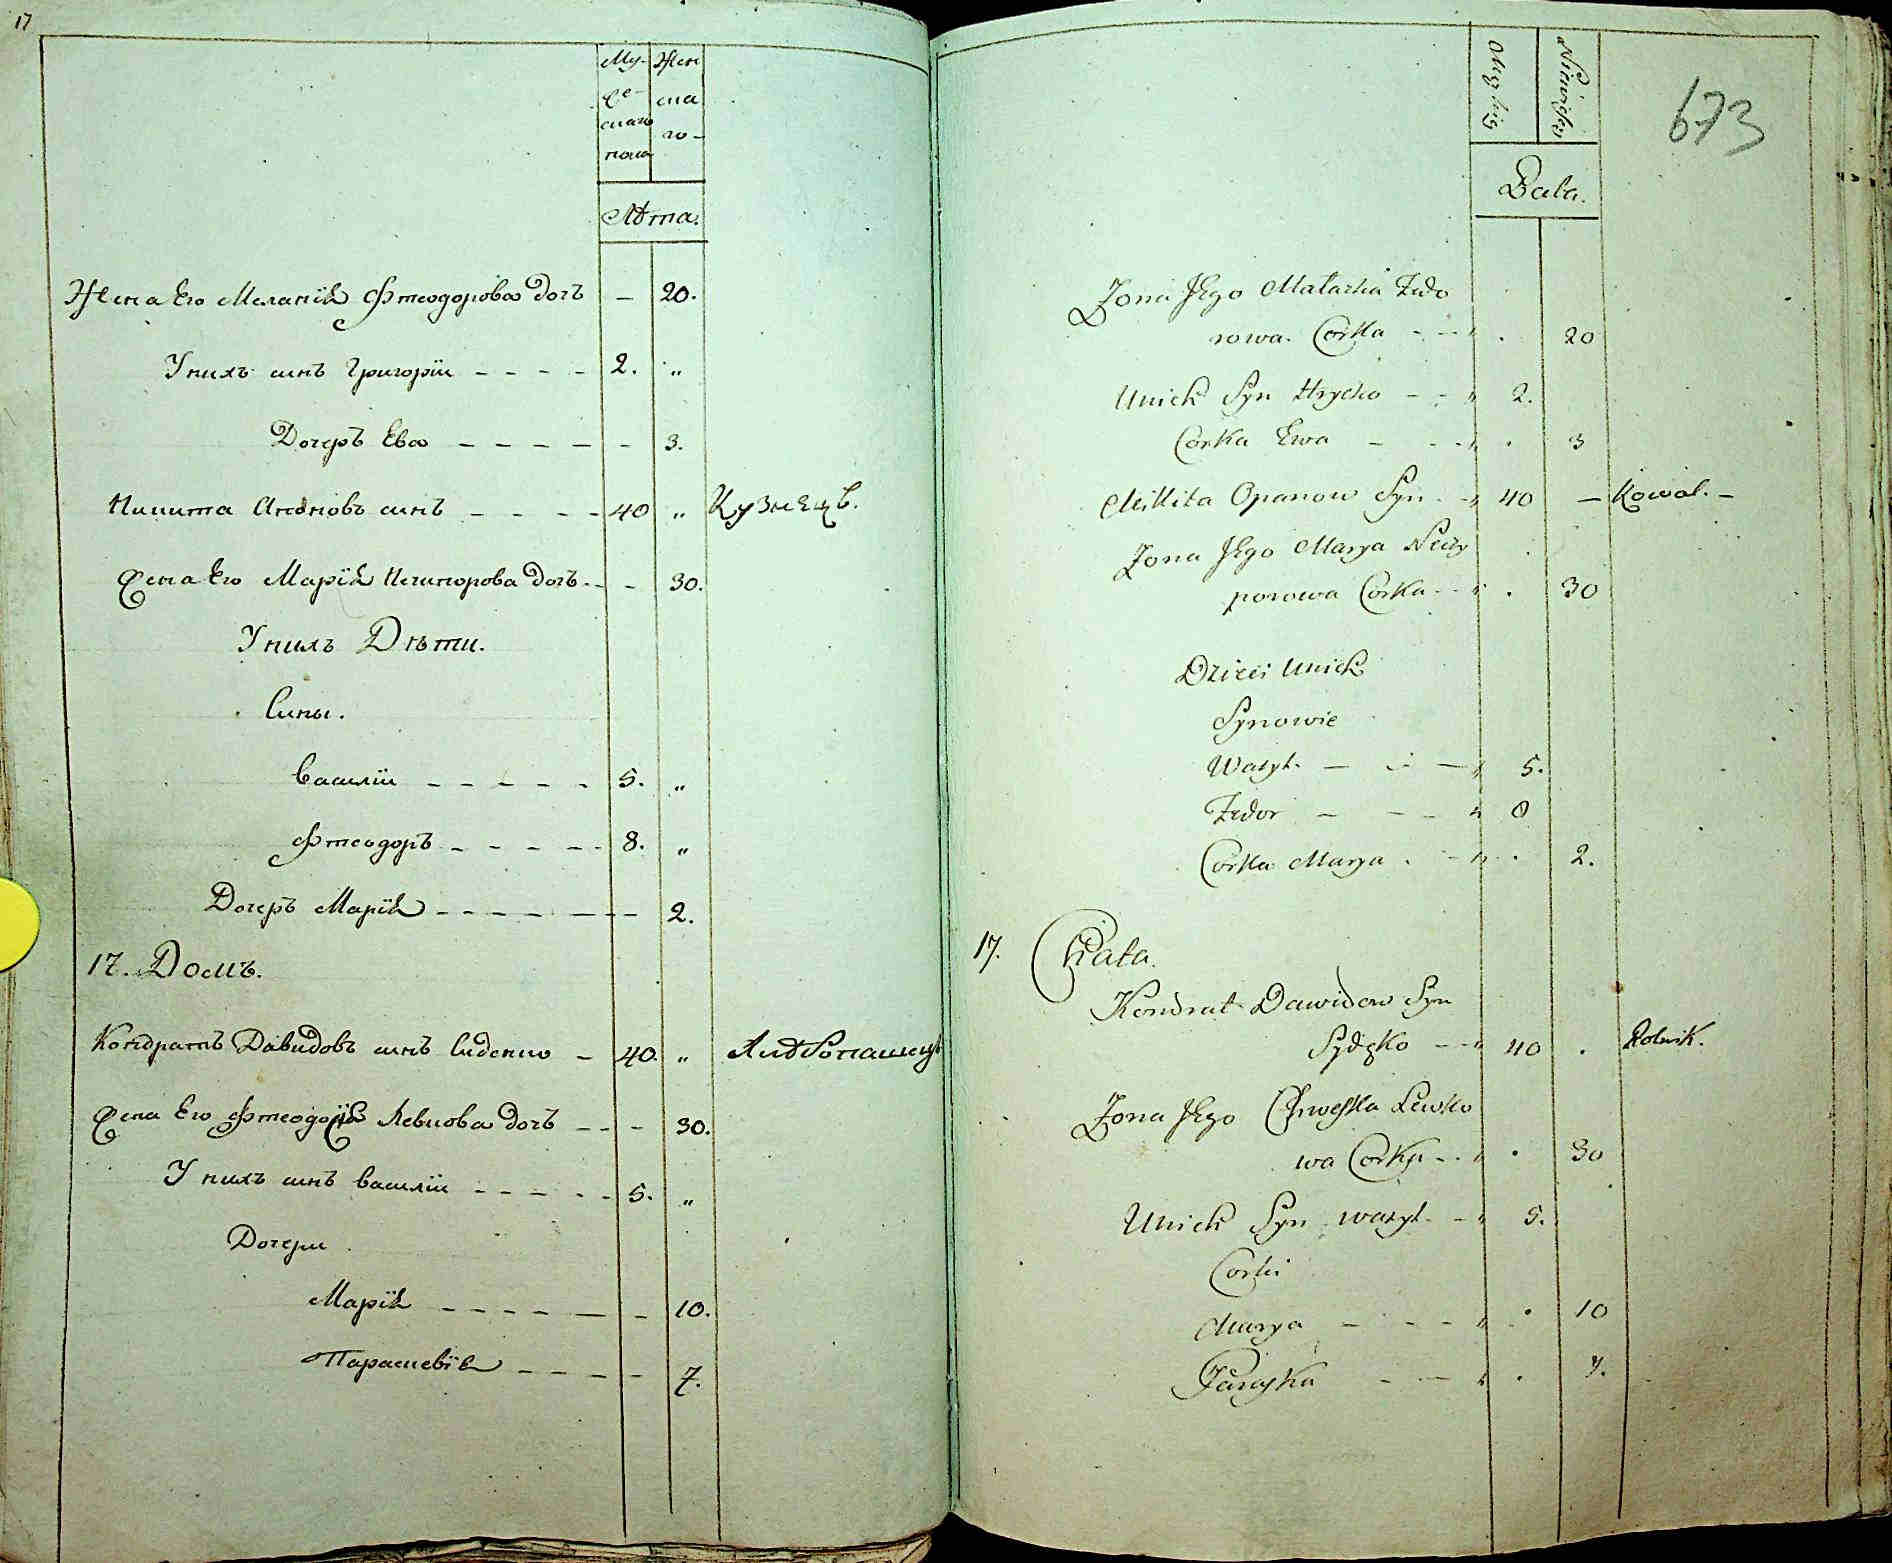 17
Му- Жен
же- ска
скаго го-
пола
Лѣта.
Жена Его Меланія Фтеодорова дочъ – 20.
У нихъ синъ Григорій – – – – 2. „
Дочеръ Ева – – – – – 3.
Никита Анѳновъ синъ – – – – 40 „ Кузнецъ.
Жена Его Марія Нечипорова дочъ – – 30.
У нихъ Дѣти.
Сины.
Василій – – – – – 5. „
Фтеодоръ – – – – – 8. „
Дочеръ Марія – – – – – – – 2.
17. Домъ.
Кондратъ Давидовъ синъ Сиденко – 40. „ Хлѣбопашецъ
Жена Его Фтеодосія Левкова дочъ – – – 30.
У нихъ синъ Василій – – – – – 5. „
Дочери
Марія – – – – – – – 10.
Параскевія – – – – – 7.
673
Męzkiey Niewiesciey
Lata.
Zona Jego Malarka Fedo
rowa Corka – – „ . 20
Unich Syn Hrycko – – „ 2.
Corka Ewa – – – „ . 3
Mikita Opanow Syn – „ 40 – Kowal. –
Zona Jego Marya Neczy
porowa Corka – – „ . 30
Dzieci Unich
Synowie
Wasyl. – – – „ 5.
Fedor – – – „ 8
Corka Marya . – „ . 2.
17. Chata.
Kondrat Dawidow Syn
Sydęko – – „ 40 . Rolnik.
Zona Jego Chweska Lewko
wa Corka – . „ . 30
Unich Syn wasyl. – „ 5.
Corki
Marya – – – – „ . 10
Paraska – – – „ . 7.